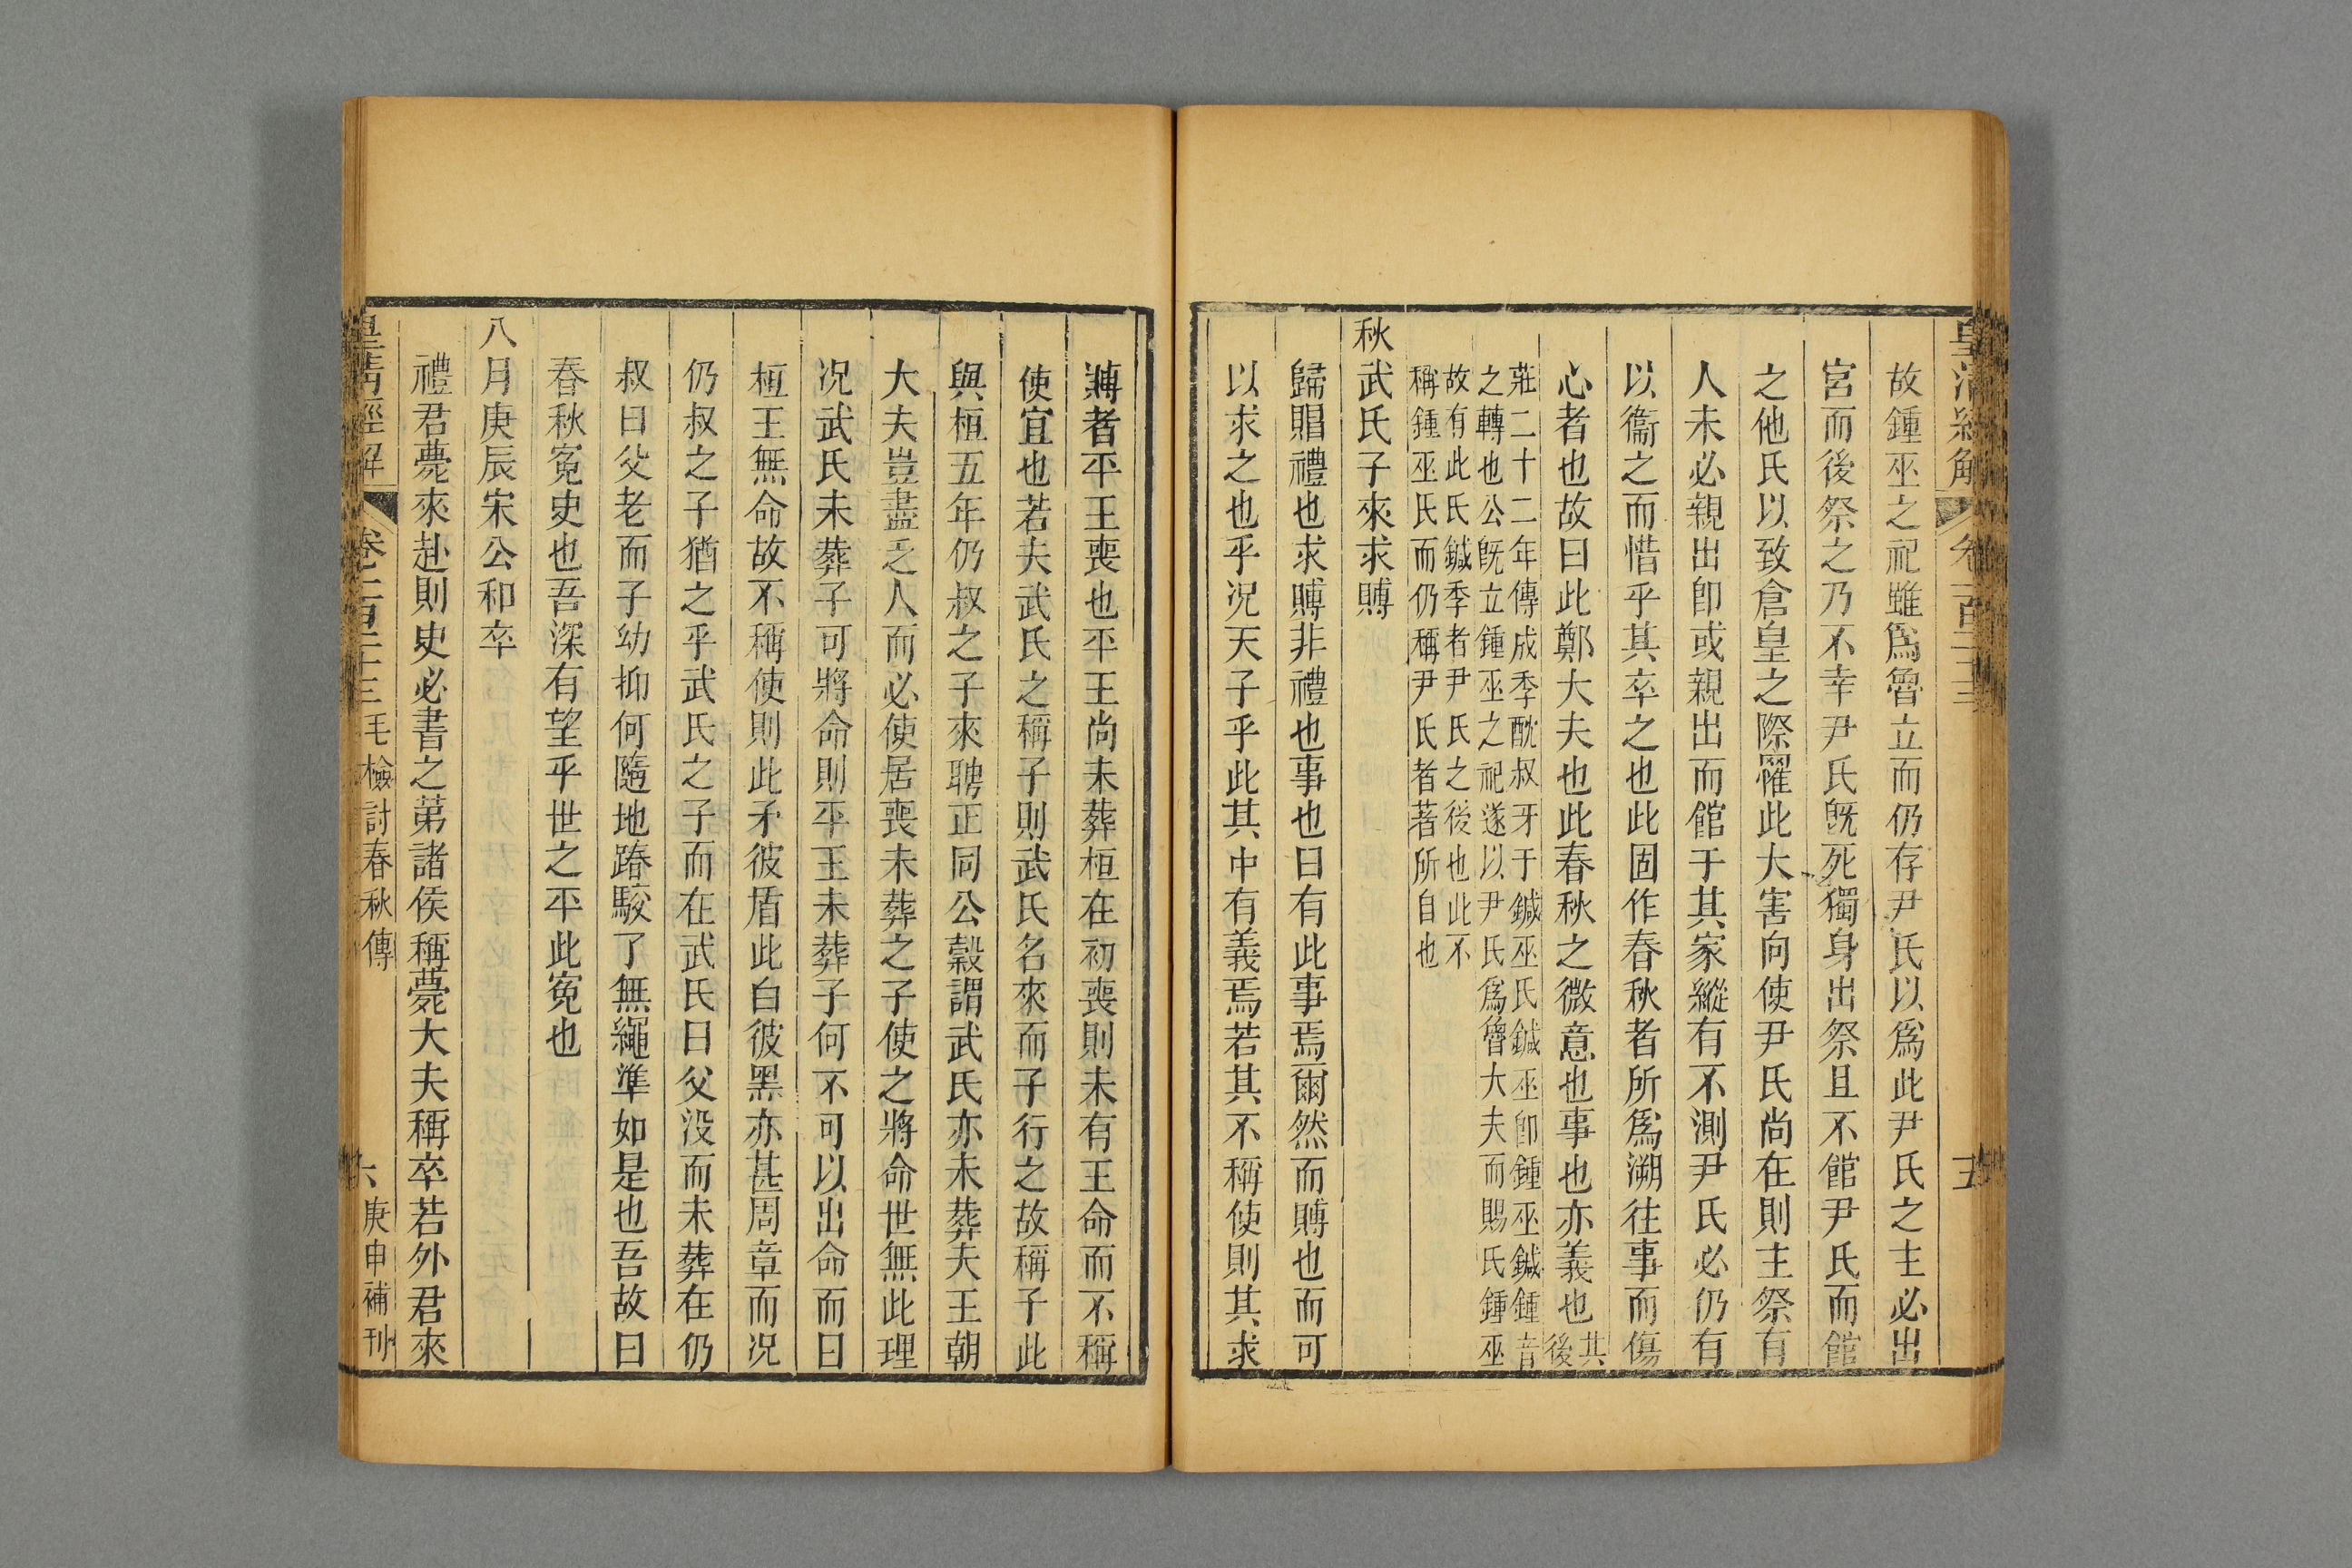 皇清經解 卷一百二十三 五
故鍾巫之祀雖爲魯立而仍存尹氏以爲此尹氏之主必出
宮而後祭之乃不幸尹氏旣死獨身出祭且不館尹氏而館
之他氏以致倉皇之際罹此大害向使尹氏尚在則主祭有
人未必親出卽或親出而館于其家縱有不測尹氏必仍有
以衞之而惜乎其卒之也此固作春秋者所爲溯往事而傷
心者也故曰此鄭大夫也此春秋之微意也事也亦義也其後
莊二十二年傳成季酖叔牙于鍼巫氏鍼巫卽鍾巫鍼鍾音
之轉也公旣立鍾巫之祀遂以尹氏爲魯大夫而賜氏鍾巫
故有此氏鍼季者尹氏之後也此不
稱鍾巫氏而仍稱尹氏者著所自也
秋武氏子來求賻
歸賵禮也求賻非禮也事也曰有此事焉爾然而賻也而可
以求之也乎况天子乎此其中有義焉若其不稱使則其求
賻者平王喪也平王尚未葬桓在初喪則未有王命而不稱
使宜也若夫武氏之稱子則武氏名來而子行之故稱子此
與桓五年仍叔之子來聘正同公穀謂武氏亦未葬夫王朝
大夫豈盡乏人而必使居喪未葬之子使之將命世無此理
况武氏未葬子可將命則平王未葬子何不可以出命而曰
桓王無命故不稱使則此矛彼盾此白彼黑亦甚周章而况
仍叔之子猶之乎武氏之子而在武氏曰父没而未葬在仍
叔曰父老而子幼抑何隨地踳駮了無繩準如是也吾故曰
春秋寃史也吾深有望乎世之平此寃也
八月庚辰宋公和卒
禮君薨來赴則史必書之第諸侯稱薨大夫稱卒若外君來
皇清經解 卷一百二十三 毛檢討春秋傳 六 庚申補刊